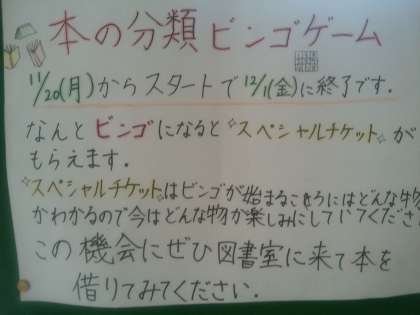 本の分類ビンゴゲーム
11/20(月)からスタートで12/1(金)に終了です.
なんとビンゴになるとスペシャルチケットが
もらえます.
スペシャルチケットはビンゴが始まるころにはどんな物
かわかるので今はどんな物か楽しみにしていてくださ
この機会にぜひ図書室に来て本を
借りてみてください.